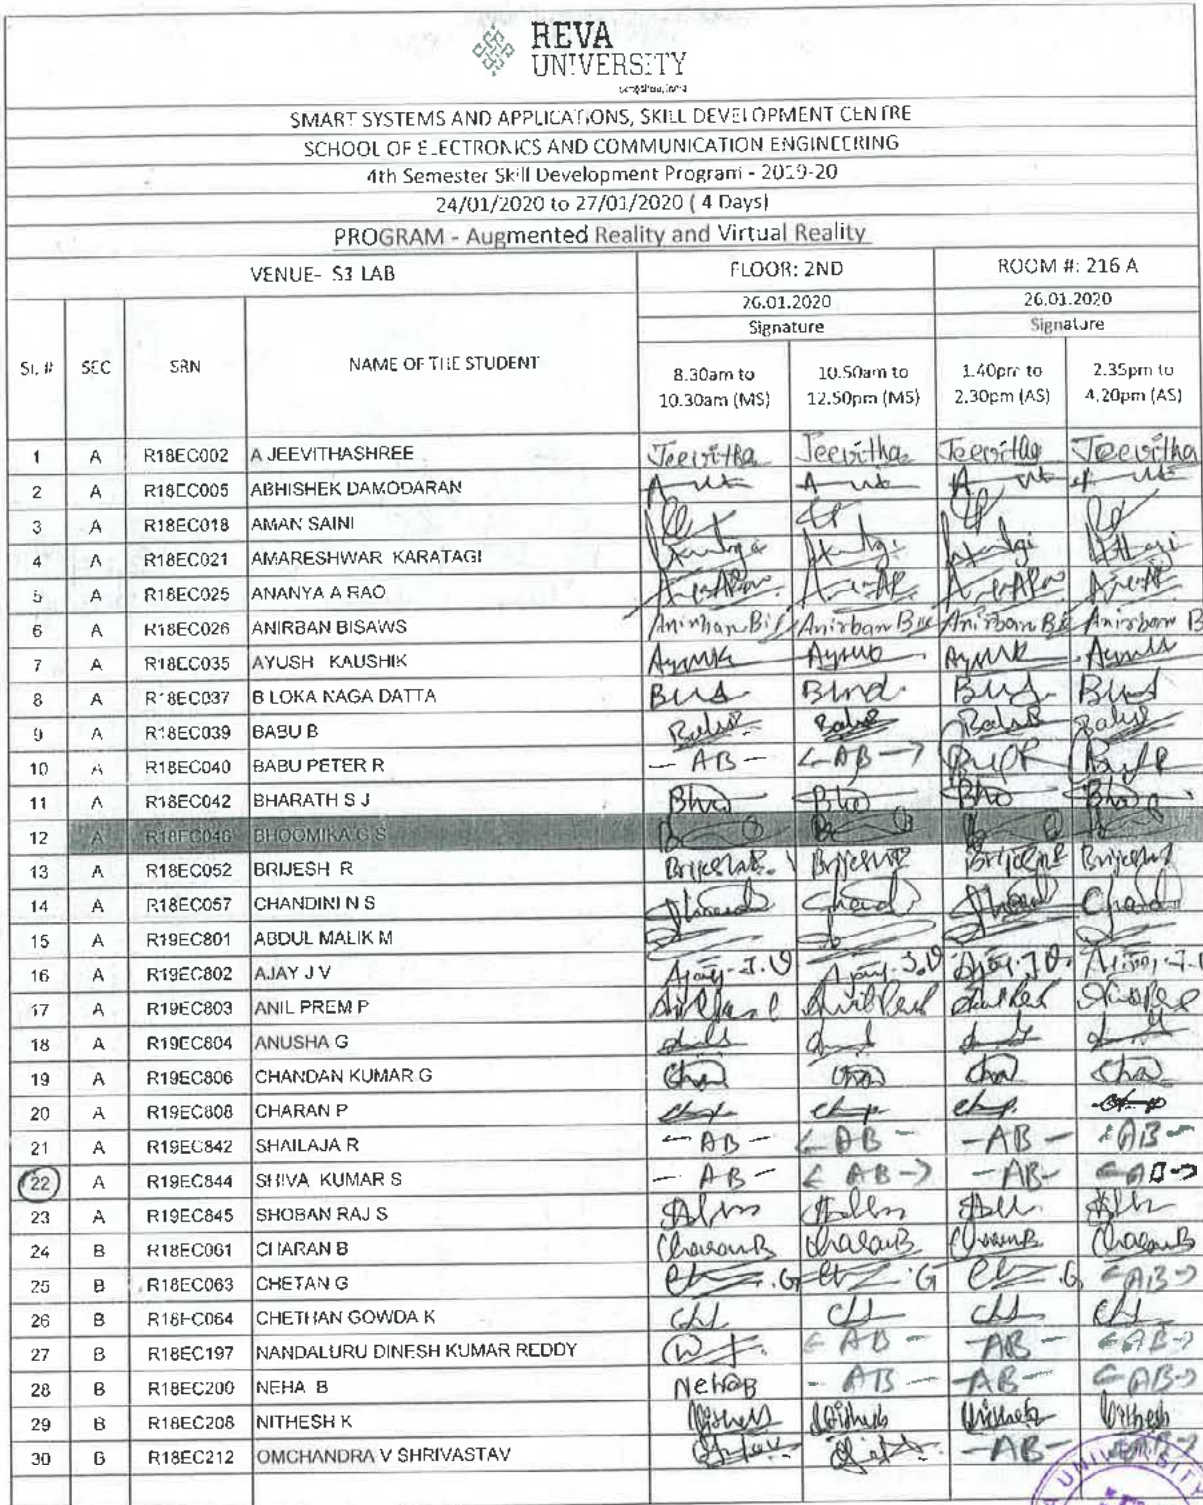 REVA
UNIVERSITY
Bengaluru, India
SMART SYSTEMS AND APPLICATIONS, SKILL DEVELOPMENT CENTRE
SCHOOL OF ELECTRONICS AND COMMUNICATION ENGINEERING
4th Semester Skill Development Program - 2019-20
24/01/2020 to 27/01/2020 ( 4 Days)
PROGRAM - Augmented Reality and Virtual Reality
VENUE- S3 LAB FLOOR: 2ND ROOM #: 216 A
26.01.2020 26.01.2020
Signature Signature
Sl. # SEC SRN NAME OF THE STUDENT 8.30am to 10.30am (MS) 10.50am to 12.50pm (MS) 1.40pm to 2.30pm (AS) 2.35pm to 4.20pm (AS)
1 A R18EC002 A JEEVITHASHREE Jeevitha Jeevitha Jeevitha Jeevitha
2 A R18EC005 ABHISHEK DAMODARAN
3 A R18EC018 AMAN SAINI
4 A R18EC021 AMARESHWAR KARATAGI
5 A R18EC025 ANANYA A RAO
6 A R18EC026 ANIRBAN BISAWS Anirban Bis Anirban Bis Anirban Bis Anirban B
7 A R18EC035 AYUSH KAUSHIK
8 A R18EC037 B LOKA NAGA DATTA
9 A R18EC039 BABU B
10 A R18EC040 BABU PETER R - AB - <- AB ->
11 A R18EC042 BHARATH S J
12 A R18EC046 BHOOMIKA G S
13 A R18EC052 BRIJESH R
14 A R18EC057 CHANDINI N S
15 A R19EC801 ABDUL MALIK M
16 A R19EC802 AJAY J V Ajay. J.V Ajay. J.V Ajay. J.V. Ajay. J.
17 A R19EC803 ANIL PREM P
18 A R19EC804 ANUSHA G
19 A R19EC806 CHANDAN KUMAR G
20 A R19EC808 CHARAN P
21 A R19EC842 SHAILAJA R - AB - <- AB - - AB - <- AB -
22 A R19EC844 SHIVA KUMAR S - AB - <- AB -> - AB - <- AB ->
23 A R19EC845 SHOBAN RAJ S
24 B R18EC061 CHARAN B CharanB CharanB CharanB CharanB
25 B R18EC063 CHETAN G <- AB ->
26 B R18EC064 CHETHAN GOWDA K
27 B R18EC197 NANDALURU DINESH KUMAR REDDY <- AB - - AB - <- AB ->
28 B R18EC200 NEHA B NehaB - AB - - AB - <- AB ->
29 B R18EC208 NITHESH K Nithesh Nithesh Nithesh Nithesh
30 B R18EC212 OMCHANDRA V SHRIVASTAV - AB - <- AB ->
UNIVERSITY